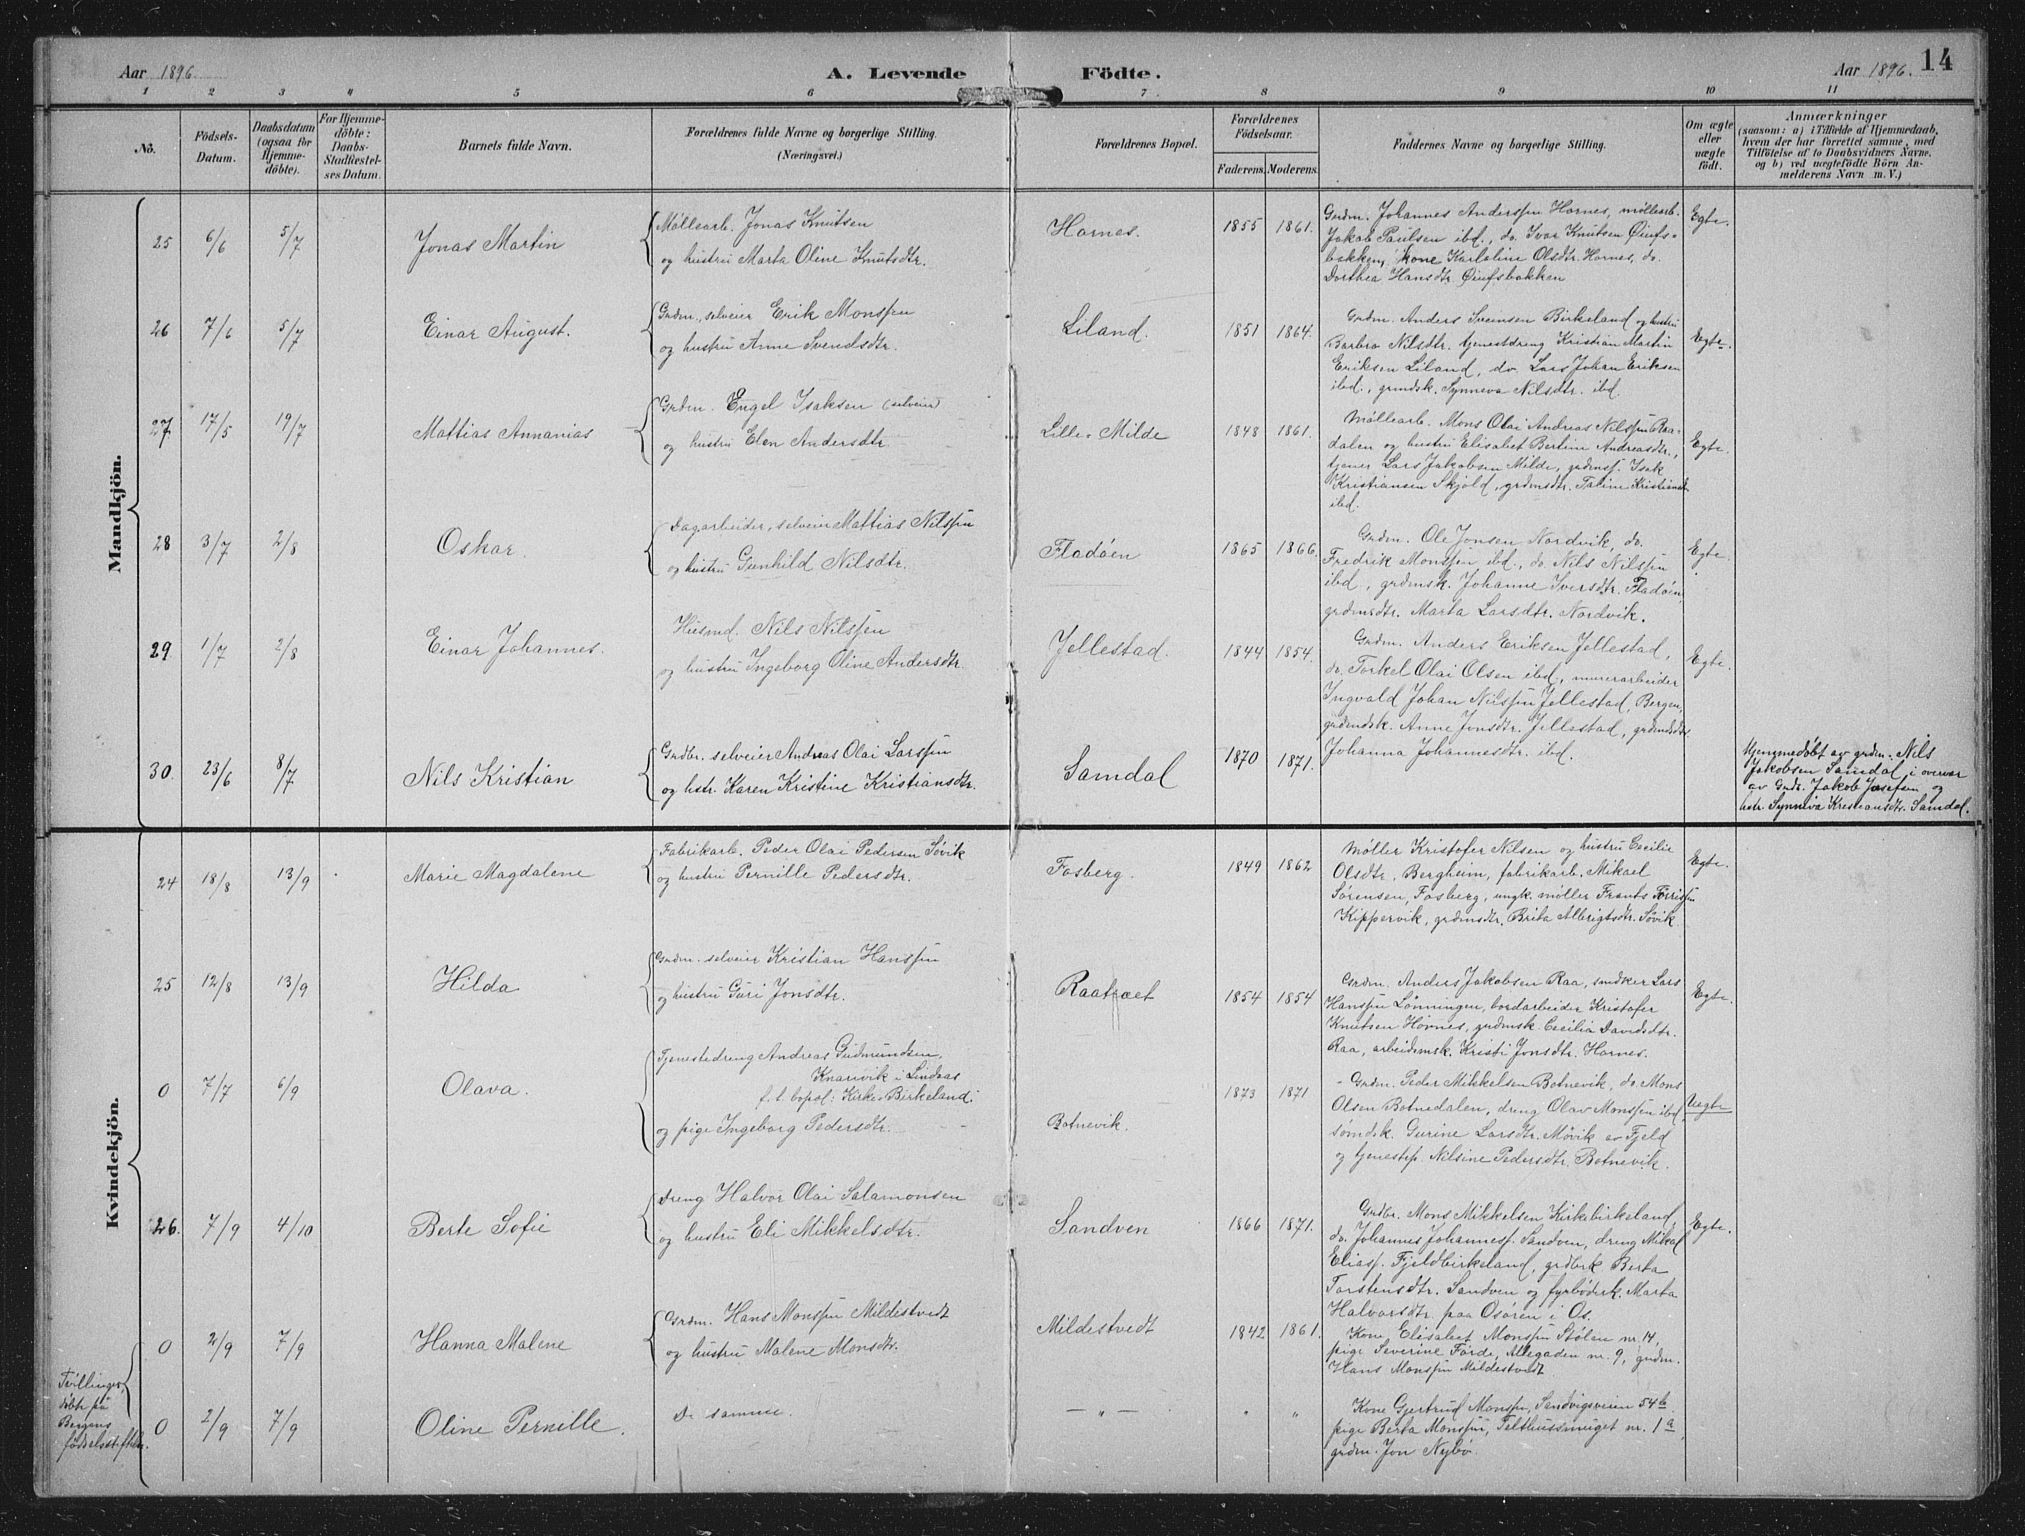 Aar 1896. A. Levende Födte. Aar 1896. 14
1 2 3 4 5 6 7 8 9 10 11
No.
Födsels-Datum.
Daabsdatum (ogsaa for Hjemme-döbte).
For Hjemme-döbte: Daabs-Stadfæstel-ses Datum.
Barnets fulde Navn.
Forældrenes fulde Navne og borgerlige Stilling.
(Næringsvei.)
Forældrenes Bopæl.
Forældrenes Födselsaar.
Faderens. Moderens.
Faddernes Navne og borgerlige Stilling.
Om ægte eller uægte födt.
Anmærkninger
(saasom: a) i Tilfælde af Hjemmedaab, hvem der har forrettet samme, med Tilföielse af to Daabsvidners Navne, og b) ved uægtefödte Börn An-melderens Navn m. V.)
Mandkjön.
25 6/6 5/7 Jonas Martin
Møllearb. Jonas Knutsen
og hustru Marta Oline Knutsdtr.
Hornes. 1855 1861.
Grdm. Johannes Anderssen Hornes, møllearb.
Jakob Paulsen ibd., do. Ivar Knutsen
bakken, kone Karloline Olsdtr. Hornes, do.
Dorthea Hansdtr.
Egte.
26 7/6 5/7 Einar August.
Grdm., selveier Erik Monssen
og hustru Anne Svendsdtr.
Liland. 1851 1864.
Grdm. Anders Svensen Birkeland og hustru
Barbro Nilsdtr. tjenestdreng Kristian Martin
Eriksen Liland, do Lars Johan Eriksen
ibd., grmdsk. Synneva Nilsdtr. ibd.
Egte.
27 17/5 19/7 Mattias Annanias
Grdm. Engel Isaksen (selveier)
og hustru Elen Andersdtr.
Lille-Milde 1848 1861.
Møllearb. Mons Olai Andreas Nilssen Raa-
dalen og hustru Elisabet Bertine Andreasdtr.,
tjener Lars Jakobsen Milde, grdmss. Isak
Kristiansen Skjold, grdmsdtr. Taline Kristiansdtr
ibd.
Egte.
28 3/7 2/8 Oskar.
Dagarbeider, selveier Mattias Nilssen
og hustru Gunhild Nilsdtr.
Fladöen 1865 1866.
Grdm. Ole Jonsen Nordvik, do.
Fredrik Monssen ibd., do. Nils Nilssen
ibd., grdmsk. Johanne Iversdtr. Fladöen,
grdmsdtr. Marta Larsdtr. Nordvik.
Egte.
29. 1/7 2/8 Einar Johannes.
Husmd. Nils Nilssen
og hustru Ingeborg Oline Andersdtr.
Jellestad. 1844 1854.
Grdm. Anders Eriksen Jellestad,
do. Torkel Olai Olsen ibd, murerarbeider
Ingvald Johan Nilssen Jellestad, Bergen,
grdmdsk. Anne Jonsdtr. Jellestad, grdmdsdtr.
Johanna Johannesdtr. ibd.
Egte.
30. 23/6 8/7 Nils Kristian
Grdbr. selveier Andreas Olai Larssen
og hstr. Karen Kristine Kristiansdtr.
Samdal 1870 1871.
Hjemmedøbt av grdm. Nils
Jakobsen Samdal, i overvær
av Grdr. Jakob Josefsen og
hstr. Synneva Kristiansdtr. Samdal.
Kvindekjön.
24 18/8 13/9 Marie Magdalene
Fabrikarb. Peder Olai Pedersen Søvik
og hustru Pernille Pedersdtr.
Fosberg. 1849 1862
Møller Kristofer Nilsen og hustru Cecilie
Olsdtr. Bergheim, fabrikarb. Mikael
Sørensen, Fosberg, ungk. møller Frants
Kippervik, grdmsdtr. Brita Albrigtsdtr. Søvik
Egte.
25 12/8 13/9 Hilda
Grdm. selveier Kristian Hanssen
og hustru Guri Jonsdtr.
Raatræet 1854 1854
Grdm. Anders Jakobsen Raa, snedker Lars
Hanssen Lønningen, bordarbeider Kristofer
Knutsen Hornes, grdmsk. Cecilia Davidsdtr.
Raa, arbeidsmsk. Kristi Jonsdtr. Hornes.
Egte.
0 7/7 6/9 Olava.
Tjenestedreng Andreas Gudmundsen,
Knarvik i Lindaas
f. t. bopæl: Kirke-Birkeland;
og pige Ingeborg Pedersdtr.
Botnevik. 1873 1871
Grdm. Peder Mikkelsen Botnevik, do. Mons
Olsen Botnedalen, dreng Olav Monssen ibd,
sømdsk. Gurine Larsdtr. Møvik av Fjeld
og tjenestep. Nilsine Pedersdtr. Botnevik.
Uegte
26. 7/9 4/10 Berte Sofie
Dreng Halvor Olai Salamonsen
og hustru Eli Mikkelsdtr.
Sandven 1866 1871.
Grdbr. Mons Mikkelsen Kirkebirkeland,
do. Johannes Johanness. Sandven, dreng Mikal
Eliass. Fjeldbirkeland, grdbrk Berta
Torstensdtr. Sandven og fyrbøderk. Marta
Halvorsdtr paa Osøren i Os.
Egte.
0 2/9 7/9 Hanna Malene
Grdm. Hans Monssen Mildestvedt
og hustru Malene Monsdtr.
Mildestvedt 1842 1861.
Kone Elisabet Monssen Stølen nr. 14,
pige Severine Førde, Allegaden nr. 9, grdm.
Hans Monssen Mildestvedt
Tvillinger,
döbte på
Bergens
födselsstiftelse.
0 2/9 7/9 Oline Pernille.
De samme
— „ — „ „
Kone Gjertrud Monsen, Sandvigsveien 54 b
pige Berta Monssen, Felthussmuget nr. 1 a,
grdm. Jon Nybø.